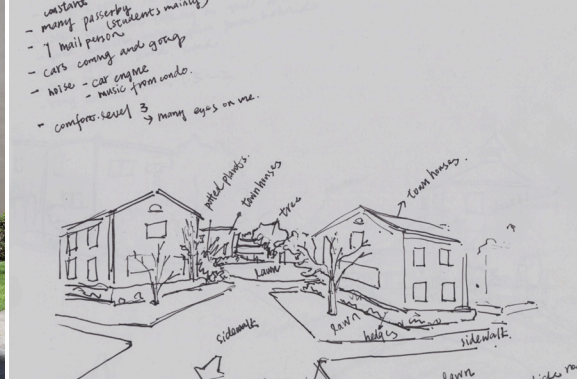 constant
- many passerby
(students mainly)
- 1 mail person
- cars coming and going
- noise - car engine
- music from condo.
- comfort level 3
→ many eyes on me.
potted plants.
townhouses
tree
townhouses.
lawn
sidewalk
lawn
hedges
sidewalk.
lawn